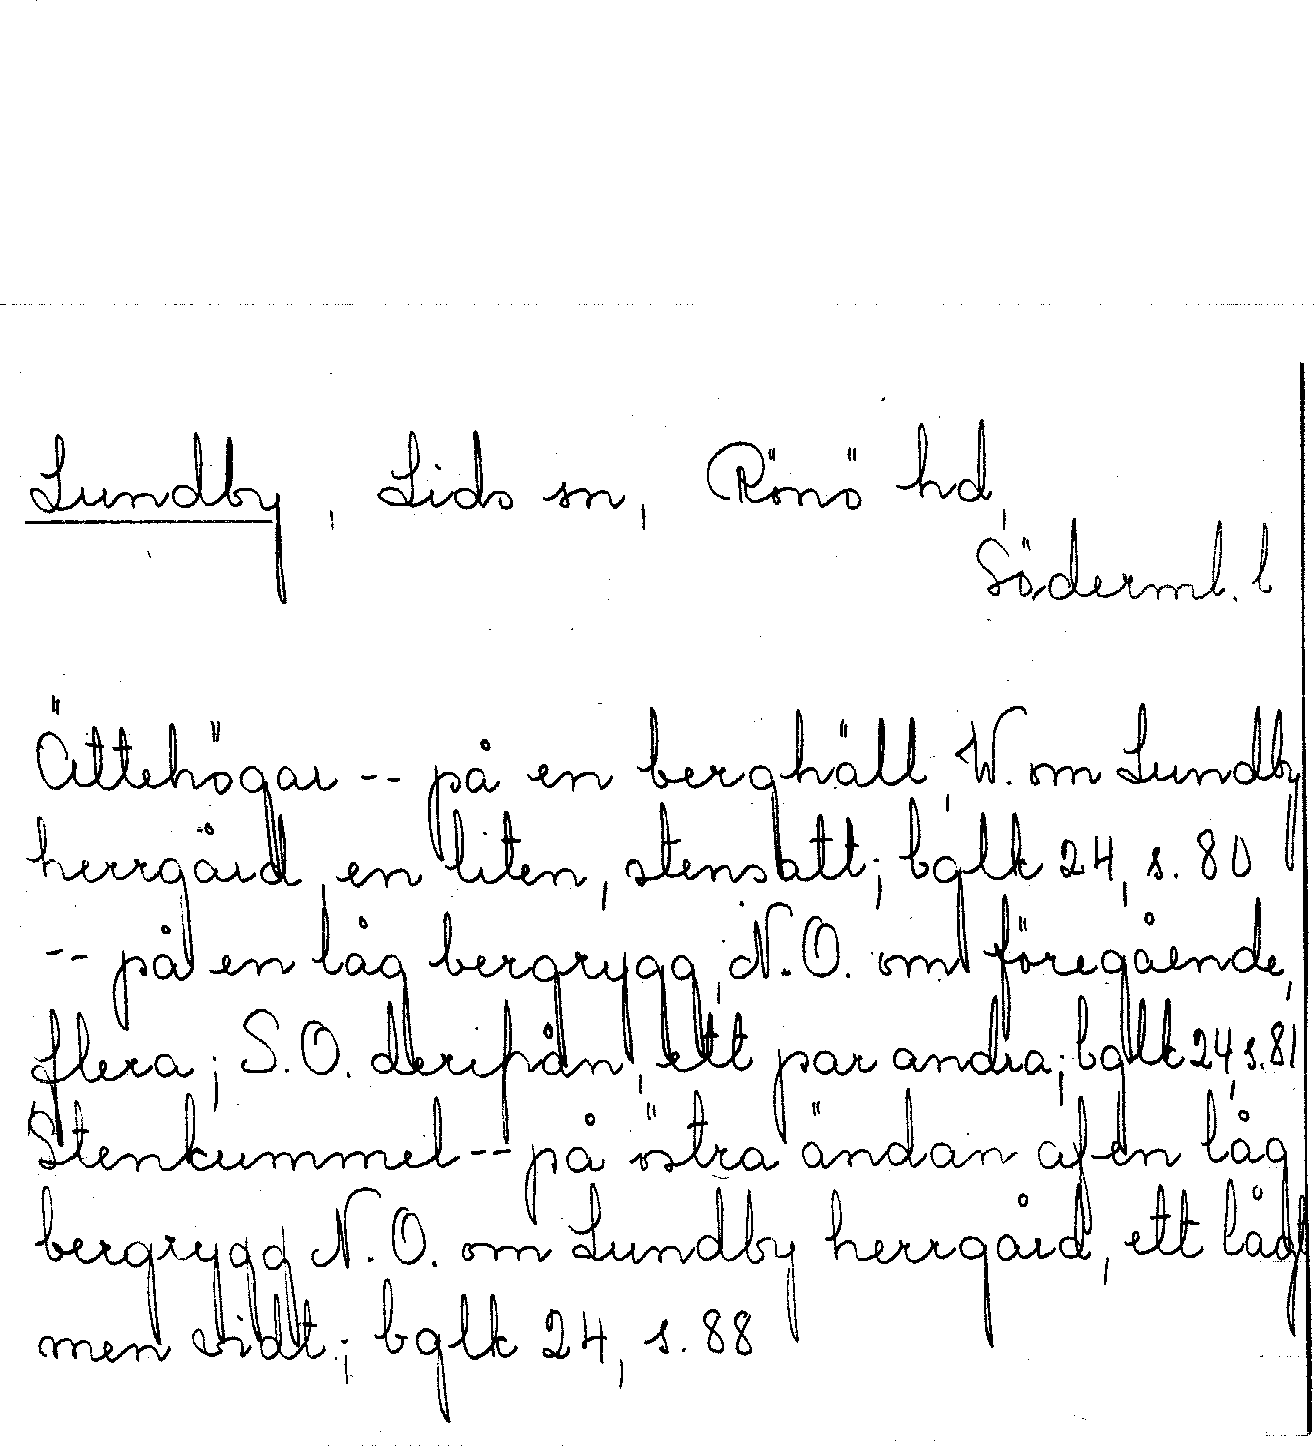 Lundby, Lids sn, Rönö hd,
Söderml. l
Ättehögar -- på en berghäll, W. om Lundby
herrgård, en liten, stensatt; bglk 24, s. 80
-- på en låg bergrygg, N.O. om föregående,
flera; S.O. derifrån, ett par andra; bglk 24, s. 81
Stenkummel -- på östra ändan af en låg
bergrygg N.O. om Lundby herrgård, ett lågt
men vidt; bglk 24, s. 88